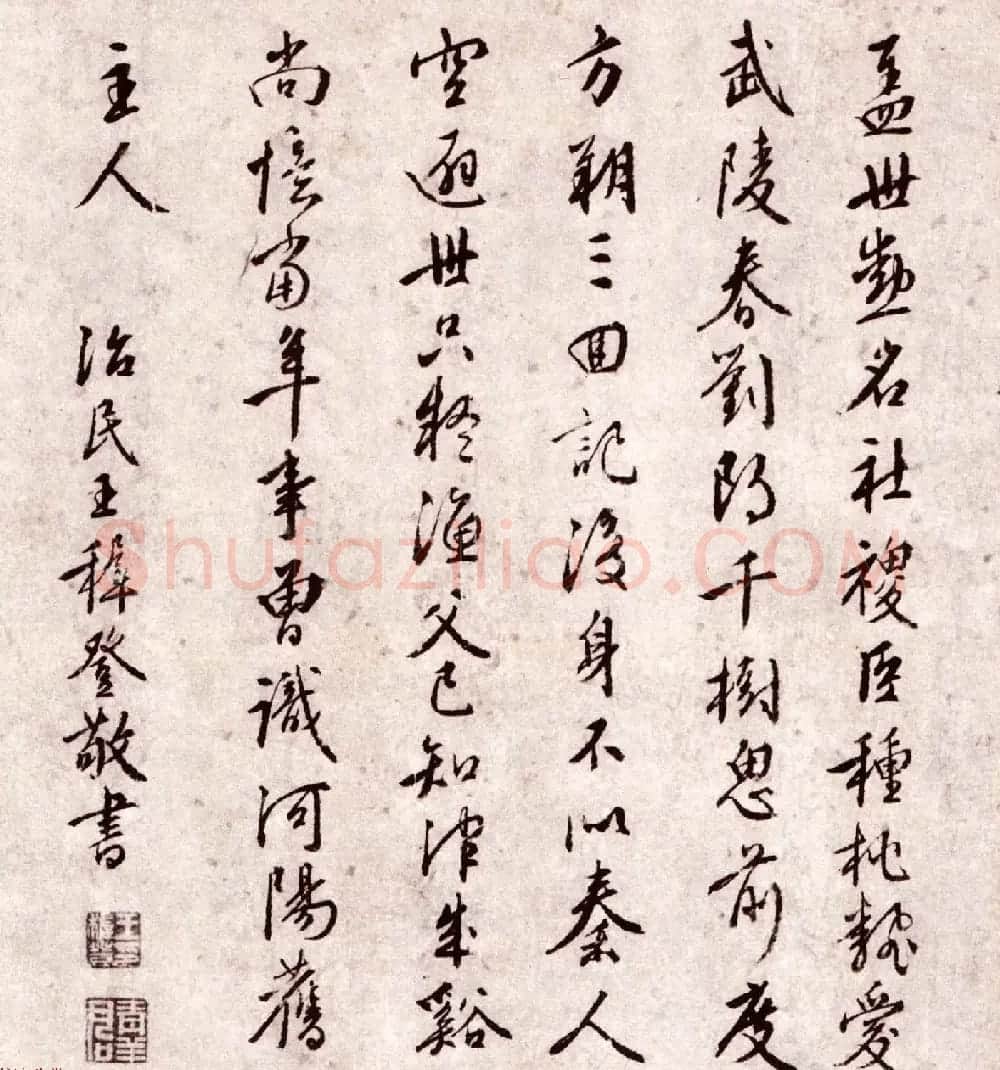 盖世勲名社稷臣種桃愛
武陵春劉郎千樹思前度
方朔三回記後身不似秦人
空避世只疑漁父已知津成谿
尚憶當年事曾識河陽舊
主人 治民王穉登敬書